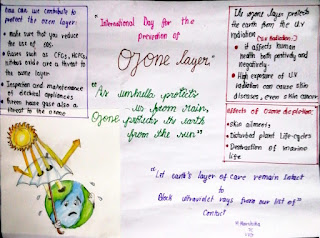 How can we contribute to
protect the ozone layer:
Make sure that you reduce
the use of
Gases such as CFCs, HCFCs,
nitrous oxide are a threat to
the ozone layer
Inspection and maintenance
of electrical appliances
Green house gases also a
threat to the ozone
"International Day for the
prevention of
Ozone layer"
"An umbrella protects
us from rain,
Ozone protects its earth
from the sun"
The ozone layer protects
the earth from the UV
radiation
(UV radiation:-)
it affects human
health both positively and
negatively.
High exposure of UV
radiation can cause skin
diseases, even skin cancer.
effects of Ozone depletion:
skin ailments
Disturbed plant life-cycles
Destruction of marine
life
"Let earth's layer of care remain intact
to
Block ultraviolet rays from our list of
Contact"